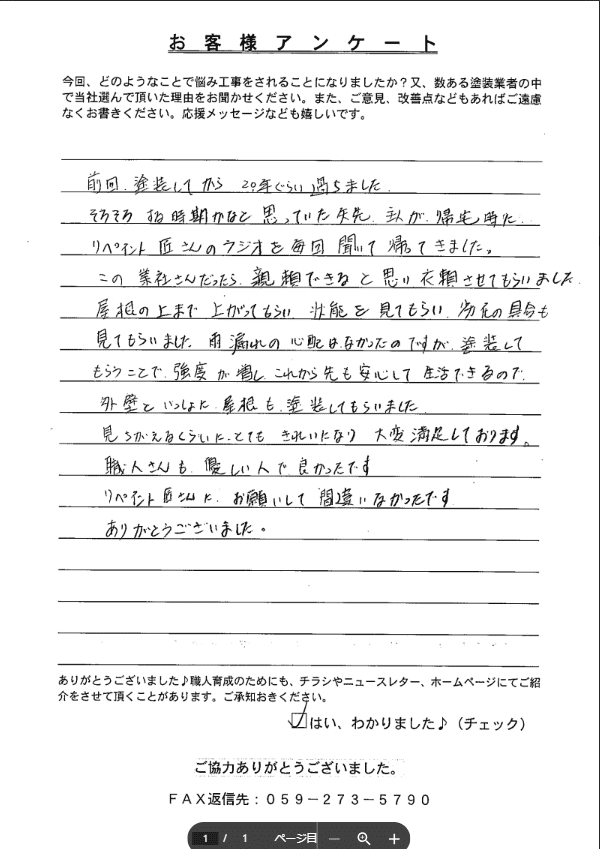 お客様アンケート
今回、どのようなことで悩み工事をされることになりましたか？又、数ある塗装業者の中
で当社選んで頂いた理由をお聞かせください。また、ご意見、改善点などもあればご遠慮
なくお書きください。応援メッセージなども嬉しいです。
前回、塗装してから 20年ぐらい過ちました
そろそろ 時期かなと 思っていた矢先、主人が、帰宅時に
リペイント匠さんのラジオを毎回 聞いて帰ってきました。
この業社さんだったら、親頼できると思い 衣頼させてもらいました
屋根の上まで 上がってもらい 状態を見てもらい、の具合も
見てもらいました 雨漏れの心配はなかったのですが、塗装して
もらうことで、強度が増し これから先も安心して生活できるので、
外壁といっしょに、屋根も、塗装してもらいました
見ちがえるくらいに、とても きれいになり 大変満足しております。
職人さんも、優しい人で良かったです
リペイント匠さんに、お願いして間違いなかったです
ありがとうございました。
ありがとうございました♪職人育成のためにも、チラシやニュースレター、ホームページにてご紹
介をさせて頂くことがあります。ご承知おきください。
☑はい、わかりました♪（チェック）
ご協力ありがとうございました。
ＦＡＸ返信先：０５９－２７３－５７９０
1 / 1 ページ目 － ＋